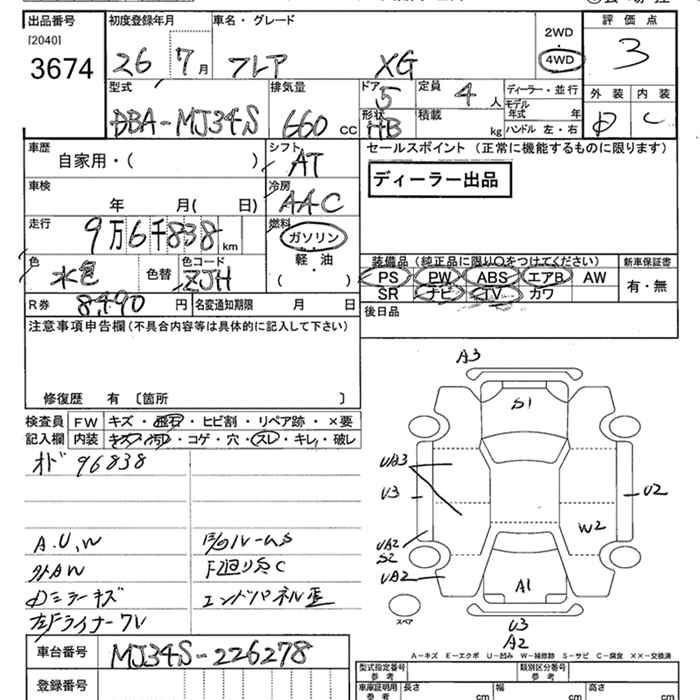 出品番号 初度登録年月 車名・グレード 2WD 評価点
[2040]
3674 26 7月 フレア XG 4WD 3
型式 排気量 ドア 5 定員 4人 ディーラー・並行 外装 内装
DBA-MJ34S 660 CC 形状 HB 積載 kg モデル年式 年 D C
ハンドル 左・右
車歴 シフト セールスポイント (正常に機能するものに限ります)
自家用・( ) AT
ディーラー出品
車検 冷房
年 月( 日) AAC
走行 燃料
9万6千838km ガソリン
軽・油
( )
色 色替 色コード 装備品(純正品に限り○をつけてください) 新車保証書
水色 ZJH PS PW ABS エアB AW 有・無
SR ナビ TV カワ
R券 8,490円 名変通知期限 月 日
後日品
注意事項申告欄(不具合内容等は具体的に記入して下さい)
修復歴 有〔箇所 〕
検査員 FW キズ・飛石・ヒビ割・リペア跡・×要
記入欄 内装 キズ・汚れ・コゲ・穴・スレ・キレ・破レ
オド 96838
A.U.W
外AW
Dミラーキズ
F廻りSC
エンドパネル歪
左Fライナーワレ
車台番号 MJ34S-226278
登録番号
A3
S1
UA3
U3
U2
W2
UA2
S2
UA2
A1
スペア
U3
A2
A-キズ E-エクボ U-凹み W-補修跡 S-サビ C-腐食 XX-交換済
型式指定番号 参考 類別区分番号 参考
車庫証明用 参考 長さ cm 幅 cm 高さ cm